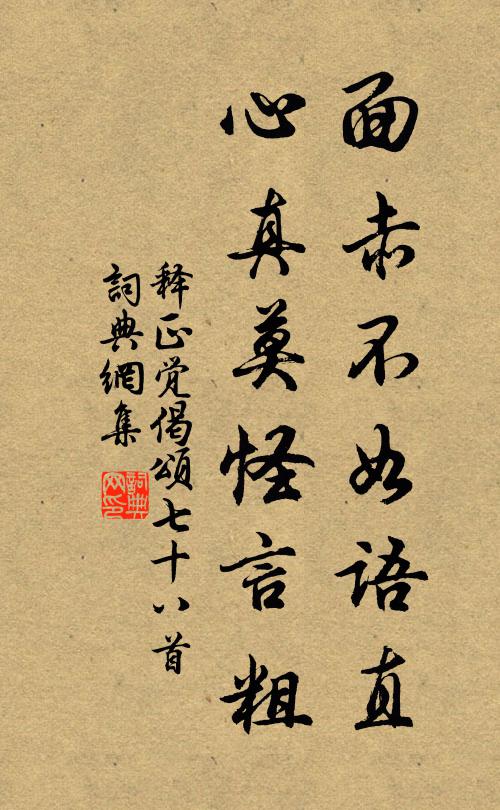 面赤不如語直
心真莫怪言粗
释正觉偈頌七十八首
詞典網集
詞典網印